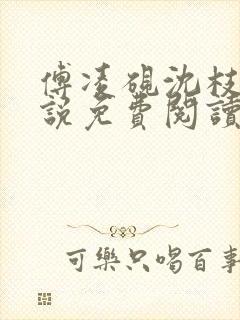 傅凌硯沈枝
說免費閱讀
可樂只喝百事